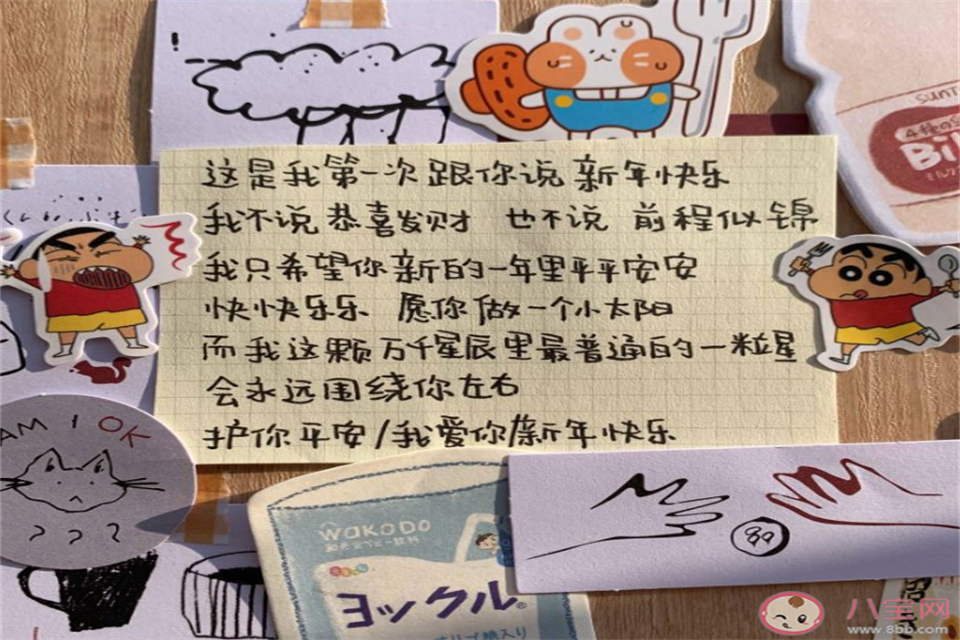 这是我第一次跟你说新年快乐
我不说恭喜发财 也不说 前程似锦
我只希望你新的一年里平平安安
快快乐乐 愿你做一个小太阳
而我这颗万千星辰里最普通的一粒星
会永远围绕你左右
护你平安/我爱你/新年快乐
AM I OK
???
wakodo
ヨックル
88
八宝网
www.8bb.com